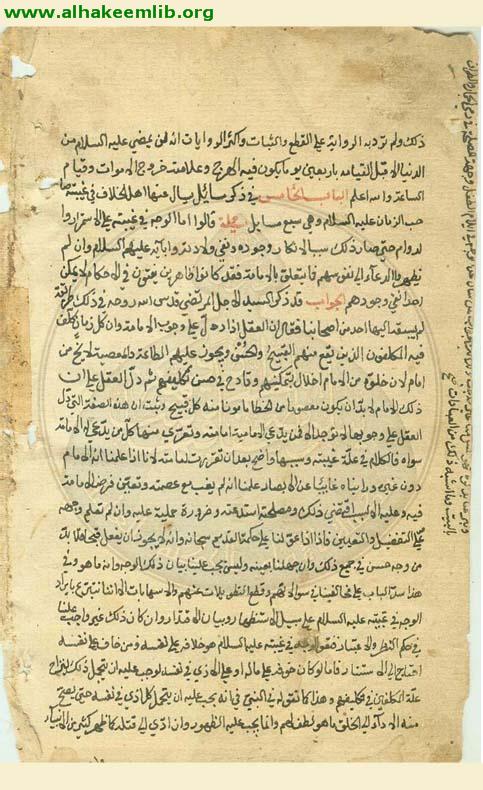 www.alhakeemlib.org
ذلك ولم ترد به الرواية على القطع والثبات واكثر الروايات انه لن يمضي عليه السلام من
الدنيا الا قبل القيامة باربعين يوما يكون فيه الهرج وعلامة خروج الاموات وقيام
الساعة والله اعلم الباب الخامس في ذكر مسائل يسال عنها اهل الخلاف في غيبة صا
حب الزمان عليه السلام وهي سبع مسايل مسئلة قالوا ما الوجه في غيبته على الاستمرار وا
لدوام حتى صار ذلك سببا لانكار وجوده ونفي ولادته وابآئه عليهم السلام وان لم
يظهروا الدعآء الى نفوسهم فيما يتعلق بالامامة فقد كانوا ظاهرين يفتون في الاحكام لا يمكن
احدا نفي وجودهم الجواب قد ذكر السيد الاجل المرتضى قدس الله روحه في ذلك طريقة
لم يسبقه اليها احد من اصحابنا فقال ان العقل اذا دل على وجوب الامامة وان كل زمان كلف
فيه المكلفون الذين يقع منهم القبيح والحسن ويجوز عليهم الطاعة والمعصية لا يخ من
امام لان خلوه من الامام اخلال بتمكينهم وقادح في حسن تكليفهم ثم دل العقل على ان
ذلك الامام لا بد ان يكون معصوما من الخطا مامونا منه كل قبيح وثبت ان هذه الصفة التي دل
العقل على وجوبها لا توجد الا فمن يدعي الامامية امامته وتعرى منها كل من يدعى له الامامة
سواه فالكلام في علة غيبته وسببها واضح بعد ان تقررت امامته لانا اذا علمنا انه الامام
دون غيره ورايناه غايبا عن الابصار علمنا انه لم يغب مع عصمته وتعين فرض الامامة
فيه وعليه الا لسبب اقتضى ذلك ومصلحة استدعته وضرورة حملت عليه وان لم تعلم وجهه
على التفصيل
من وجه حسن في جميع ذلك وان جهلناه بعينه وليس يجب علينا بيان ذلك الوجه وانه ما هو وفي
هذا سد الباب على مخالفينا في سوالاتهم وقطع التطويلات عنهم والاسهابات الا اننا نتبرع بايراد
الوجه في غيبته عليه السلام على سبيل الاستظهار وبيان الاقتدار وان كان ذلك غير واجب علينا
في حكم النظر والاعتبار فنقول الوجه في غيبته عليه السلام هو خوفه على نفسه ومن خاف على نفسه
احتاج الى الاستتار فاما لو كان خوفه على ماله او على الاذى في نفسه لوجب عليه ان يتحمل ذلك كله لتنزاح
علة المكلفين في تكليفهم وهذا كما نقوله في النبي في انه يجب عليه ان يتحمل كل اذى في نفسه حتى يصح
منه الادآء الى الخلق ما هو لطف لهم وانما يجب عليه الظهور وان ادى الى قتله كما ظهر كثير من الانبياء